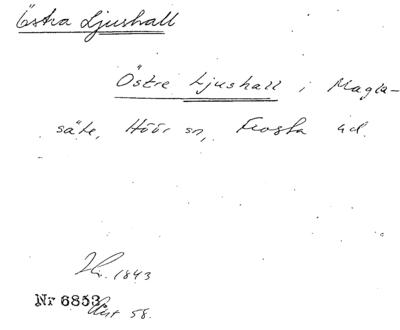 Östra Ljushall
Östre Ljushall i Magla-
säte, Höör sn, Frosta hd.
1843
Nr 6853
58.